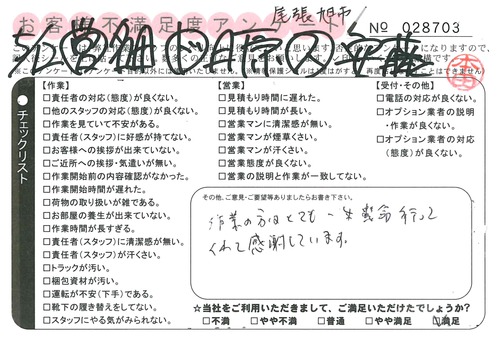 お客様不満足度アンケート
尾張旭市
№ 028703
チェックリスト
【作業】
□責任者の対応(態度)が良くない。
□他のスタッフの対応(態度)が良くない。
□作業を見ていて不安がある。
□責任者(スタッフ)に好感が持てない。
□お客様への挨拶が出来ていない。
□ご近所への挨拶・気遣いが無い。
□作業開始前の内容確認がなかった。
□作業開始時間が遅れた。
□荷物の取り扱いが雑である。
□お部屋の養生が出来ていない。
□作業時間が長すぎる。
□責任者(スタッフ)に清潔感が無い。
□責任者(スタッフ)が汗くさい。
□トラックが汚い。
□梱包資材が汚い。
□運転が不安(下手)である。
□靴下の履き替えをしてない。
□スタッフにやる気がみられない。
【営業】
□見積もり時間に遅れた。
□見積もり時間が長い。
□営業マンに清潔感が無い。
□営業マンが煙草くさい。
□営業マンが汗くさい。
□営業態度が良くない。
□営業の説明と作業が一致してない。
【受付・その他】
□電話の対応が良くない。
□オプション業者の説明
・作業が良くない。
□オプション業者の対応
(態度)が良くない。
その他、ご意見・ご要望等ありましたらお書き下さい。
作業の方はとても一生懸命行って
くれて感謝しています。
☆当社をご利用いただきまして、ご満足いただけたでしょうか?
□不満 □やや不満 □普通 □やや満足 □満足